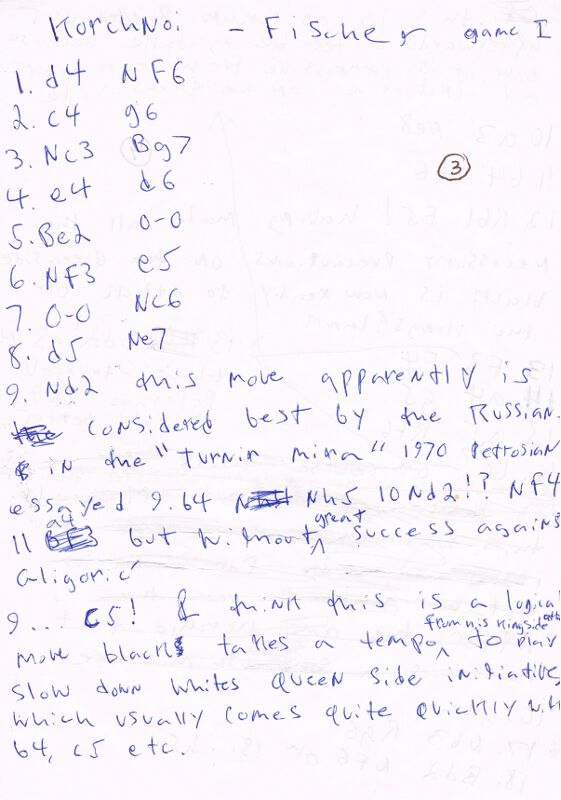 Korchnoi - Fischer game I
1. d4 NF6
2. c4 g6
3. Nc3 Bg7
3
4. e4 d6
5. Be2 0-0
6. NF3 e5
7. 0-0 Nc6
8. d5 Ne7
9. Nd2 this move apparently is
considered best by the Russian.
in the "turnir mira" 1970 Petrosian
essayed 9. b4 Nh5 10 Nd2!? Nf4
11 a4 but without great success agains
Gligoric
9... c5! I think this is a logical
move black takes a tempo from his kingside to play
slow down whites queen side initiative,
which usually comes quite quickly with
b4, c5 etc.